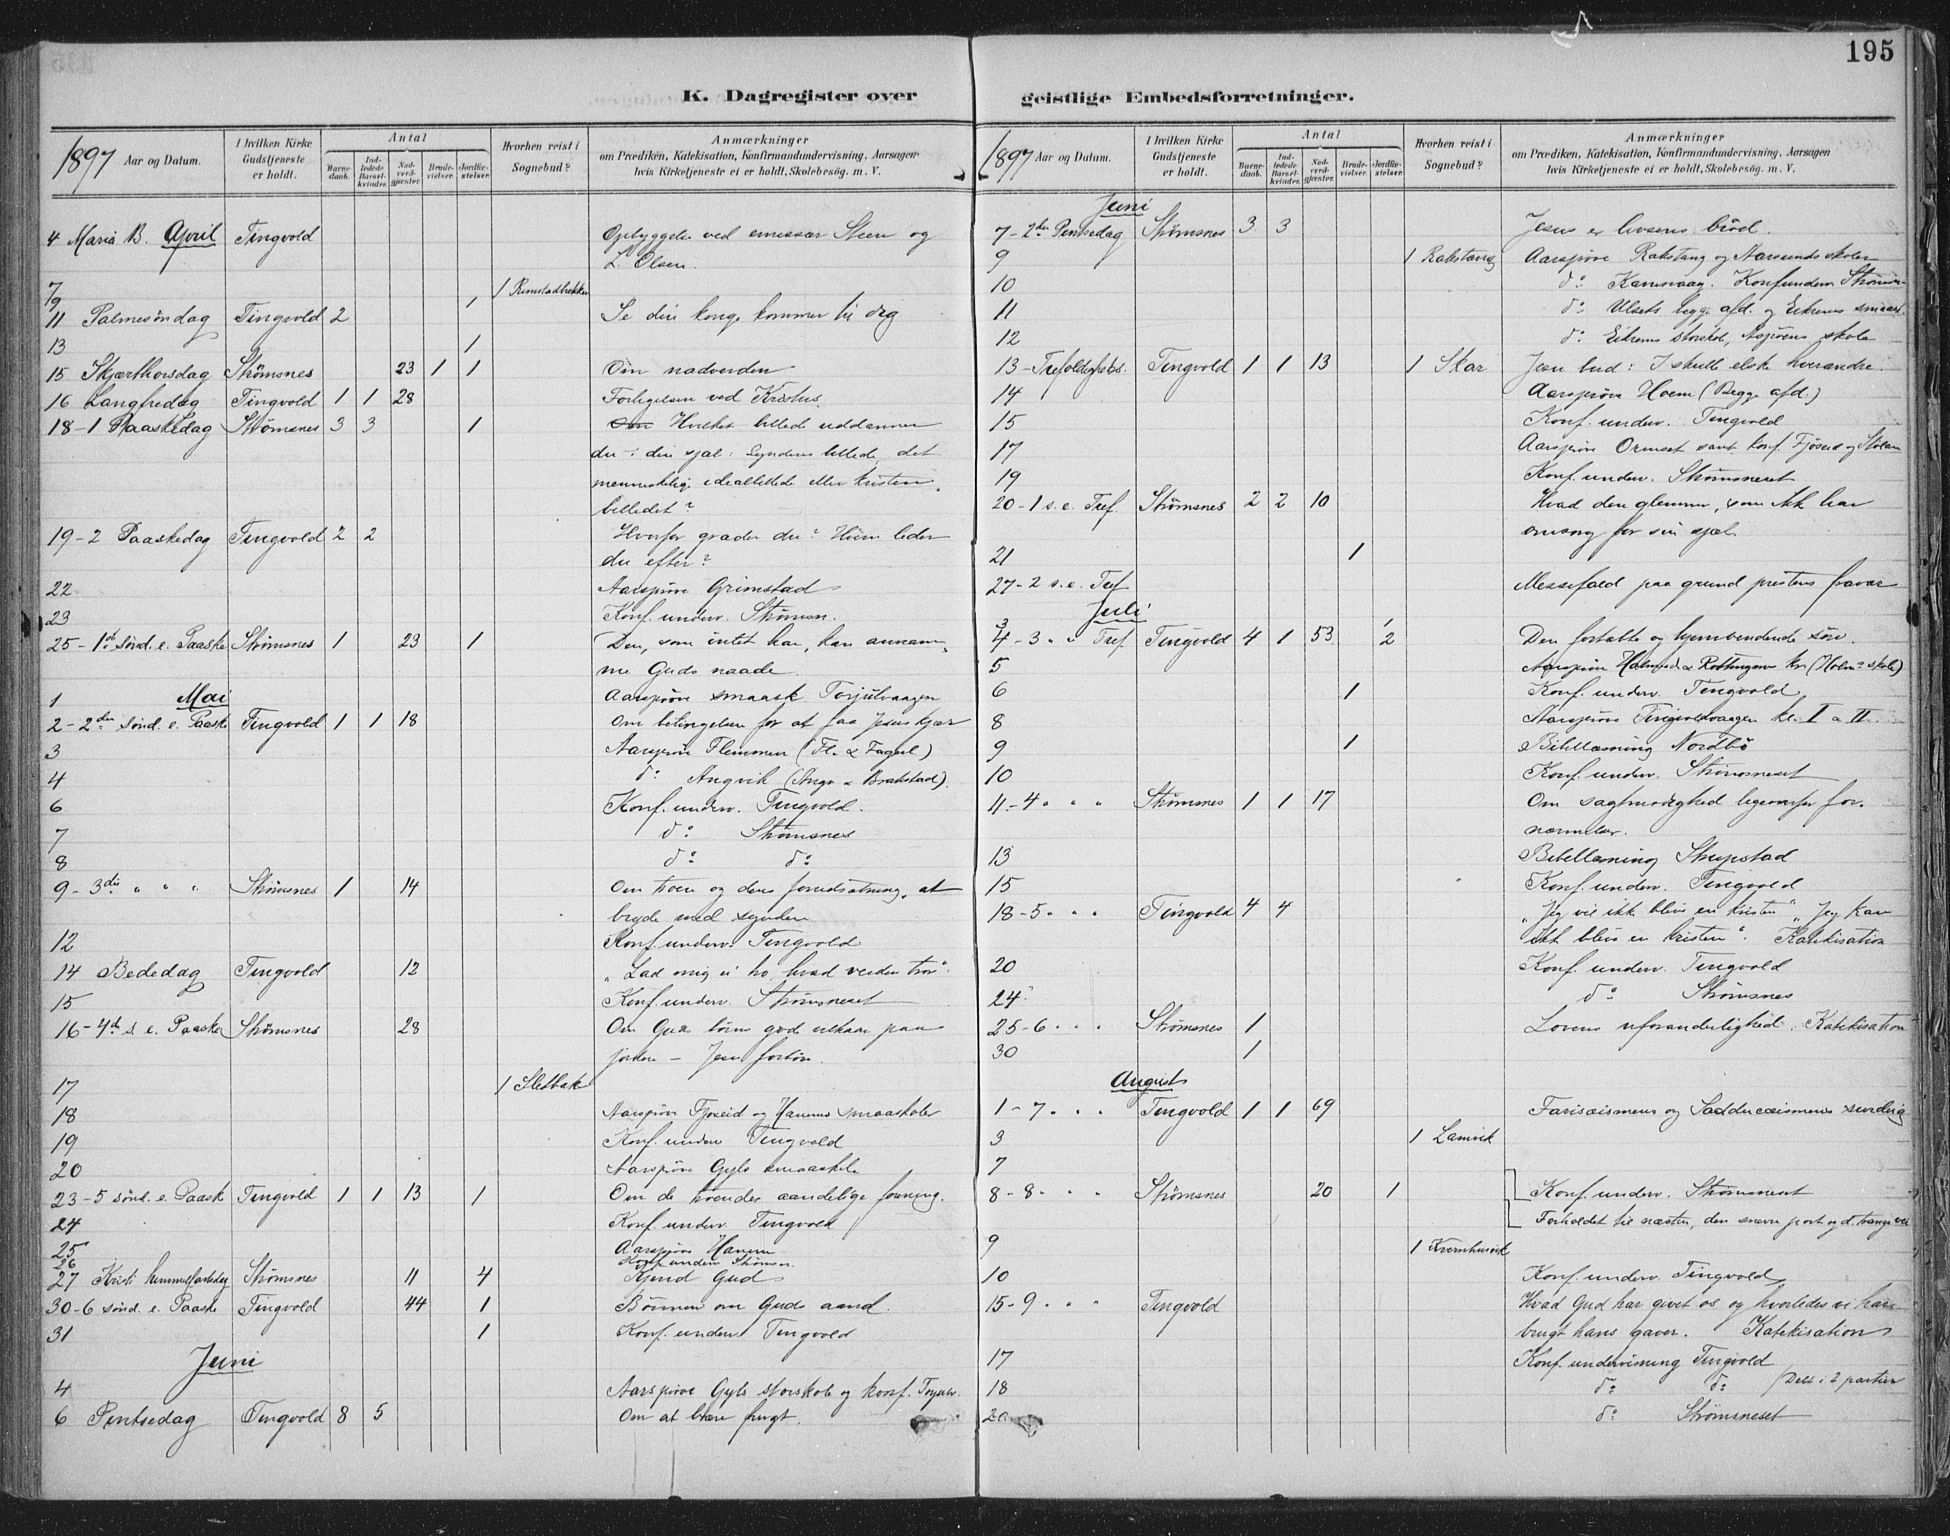 195
K. Dagregister over
geistlige Embedsforretninger.
1897 Aar og Datum.
I hvilken Kirke Gudstjeneste er holdt.
Antal
Barnedaab.
Indledede Barselkvinder.
Nadverdgjæster.
Brudevielser.
Jordfæstelser.
Hvorhen reist i Sognebud?
Anmærkninger
om Prædiken, Katekisation, Konfirmandundervisning, Aarsagen
hvis Kirketjeneste ei er holdt, Skolebesög. m. V.
4 Maria B. April Tingvold Opbyggelse ved emissær Steen og
L. Olsen.
7 1 Rimstadbrekken
9 1
11 Palmesöndag Tingvold 2 Se din konge kommer til dig
13 1
15 Skjærthorsdag Strømsnes 23 1 1 Om nadverden
16 Langfredag Tingvold 1 1 28 Forligelsen ved Kristus.
18-1 Paaskedag Strømsnes 3 3 1 Om Hvilket billede uddanner
du i din sjæl: Syndens billede, det
menneskelige idealbillede eller kristen
billedet?
19-2 Paaskedag Tingvold 2 2 Hvorfor græder du? Hvem leder
du efter?
22 Aarspröve Grimstad
23 Konf. underv. Strømsn.
25-1ste sönd. e. Paaske Strømsnes 1 23 1 Den, som intet har, kan annam-
me Guds naade.
Mai
1 Aarspröve smaask Torjulvaagen
2-2den sönd. e. Paaske Tingvold 1 1 18 Om betingelsen for at faa Jesus kjær
3 Aarspröve Flemmen (Fl. & Fagerl.)
4 do Angvik (Angv & Brakstad).
6 Konf. underv. Tingvold.
7 do Strømsnes
8 do do
9-3die " " " Strømsnes 1 14 Om troen og dens forudsætning, at
bryde med synden
12 Konf. underv. Tingvold
14 Bededag Tingvold 12 "Lad mig ei ho, hvad verden tror".
15 Konf. underv. Strømsneset
16-4de s. e. Paaske Strømsnes 28 Om Guds börns gode vilkaar paa
jorden — Jesu forbön.
17 1 Sletbak
18 Aarspröve Fjøseid og Hanems smaaskoler
19 Konf. underv Tingvold
20 Aarspröve Gyls smaaskole
23-5 sönd. e. Paaske Tingvold 1 1 13 1 Om de troendes aandelige forening.
24 Konf. underv. Tingvold
25 Aarspröve Hanem
26 Konf underv Strømsn.
27 Kristi himmelfartsdag Strømsnes 11 4 Kjend Gud
30-6 sönd. e. Paaske Tingvold 44 1 Bönnen om Guds aand.
31 1 Konf. underv. Tingvold
Juni
4 Aarspröve Gyls storskole og konf.
6 Pintsedag Tingvold 8 5 Om at bære frugt.
1897 Aar og Datum.
I hvilken Kirke Gudstjeneste er holdt.
Antal
Barnedaab.
Indledede Barselkvinder.
Nadverdgjæster.
Brudevielser.
Jordfæstelser.
Hvorhen reist i Sognebud?
Anmærkninger
om Prædiken, Katekisation, Konfirmandundervisning, Aarsagen
hvis Kirketjeneste ei er holdt, Skolebesög. m. V.
Juni
7-2den Pintsedag Strømsnes 3 3 Jesus er livsens bröd.
9 1 Rakstang Aarspröve Rakstang og Aarsunds skoler
10 do Kamsvaag. Konf underv. Strømsn
11 do Ulsets begge afd. og Eikrems smaask.
12 do Eikrems storskol, Aspöens skole
13-Trefoldighetss. Tingvold 1 1 13 1 Skar Jesu bud: I skulle elske hverandre.
14 Aarspröve Hoem (Begge afd.)
15 Konf. underv. Tingvold
17 Aarspröve Ormset samt konf. Fjöseid og
19 Konf. underv. Strømsneset
20-1 s. e. Tref. Strømsnes 2 2 10 Hvad den glemmer, som ikke har
omsorg for sin sjæl.
21 1
27-2 s. e. Tref Messefald paa grund prestens fravær
Juli
3 1
4-3 " " Tref. Tingvold 4 1 53 2 Den fortabte og hjemvendende sön.
5 Aarspröve Holmeid & Rottingsnes kr. (Holms skole)
6 1 Konf. underv. Tingvold
8 Aarspröve Tingvoldvaagen kl. I & II.
9 1 Bibellæsning Nordbö
10 Konf. underv. Strømsneset
11-4 " " " Strømsnes 1 1 17 Om sagtmodighed ligeoverfor for-
nærmelser.
13 Bibellæsning Stupstad
15 Konf. underv. Tingvold
18-5 " " " Tingvold 4 4 "Jeg vil ikke blive en kristen" "Jeg kan
ikke blive en kristen". Katekisation
20 Konf. underv. Tingvold
24 do Strømsnes
25-6 " " " Strømsnes 1 Lovens uforanderlighed. Katekisation
30 1
August
1-7 " " " Tingvold 1 1 69 Farisæismens og Sadducæismens surdeig
3 1 Lamvik
7 Konf. underv. Strømsneset
8-8 " " " Strømsnes 20 1 Forholdet til næsten, den snevre port og d. trange vei
9 1 Kvernhusvik
10 Konf. underv. Tingvold
15-9 " " " Tingvold Hvad Gud har givet os og hvorledes vi har
brugt hans gaver. Katekisation
17 Konf. undervisning Tingvold
18 do do (Delt i 2 partier
20 do Strømsneset